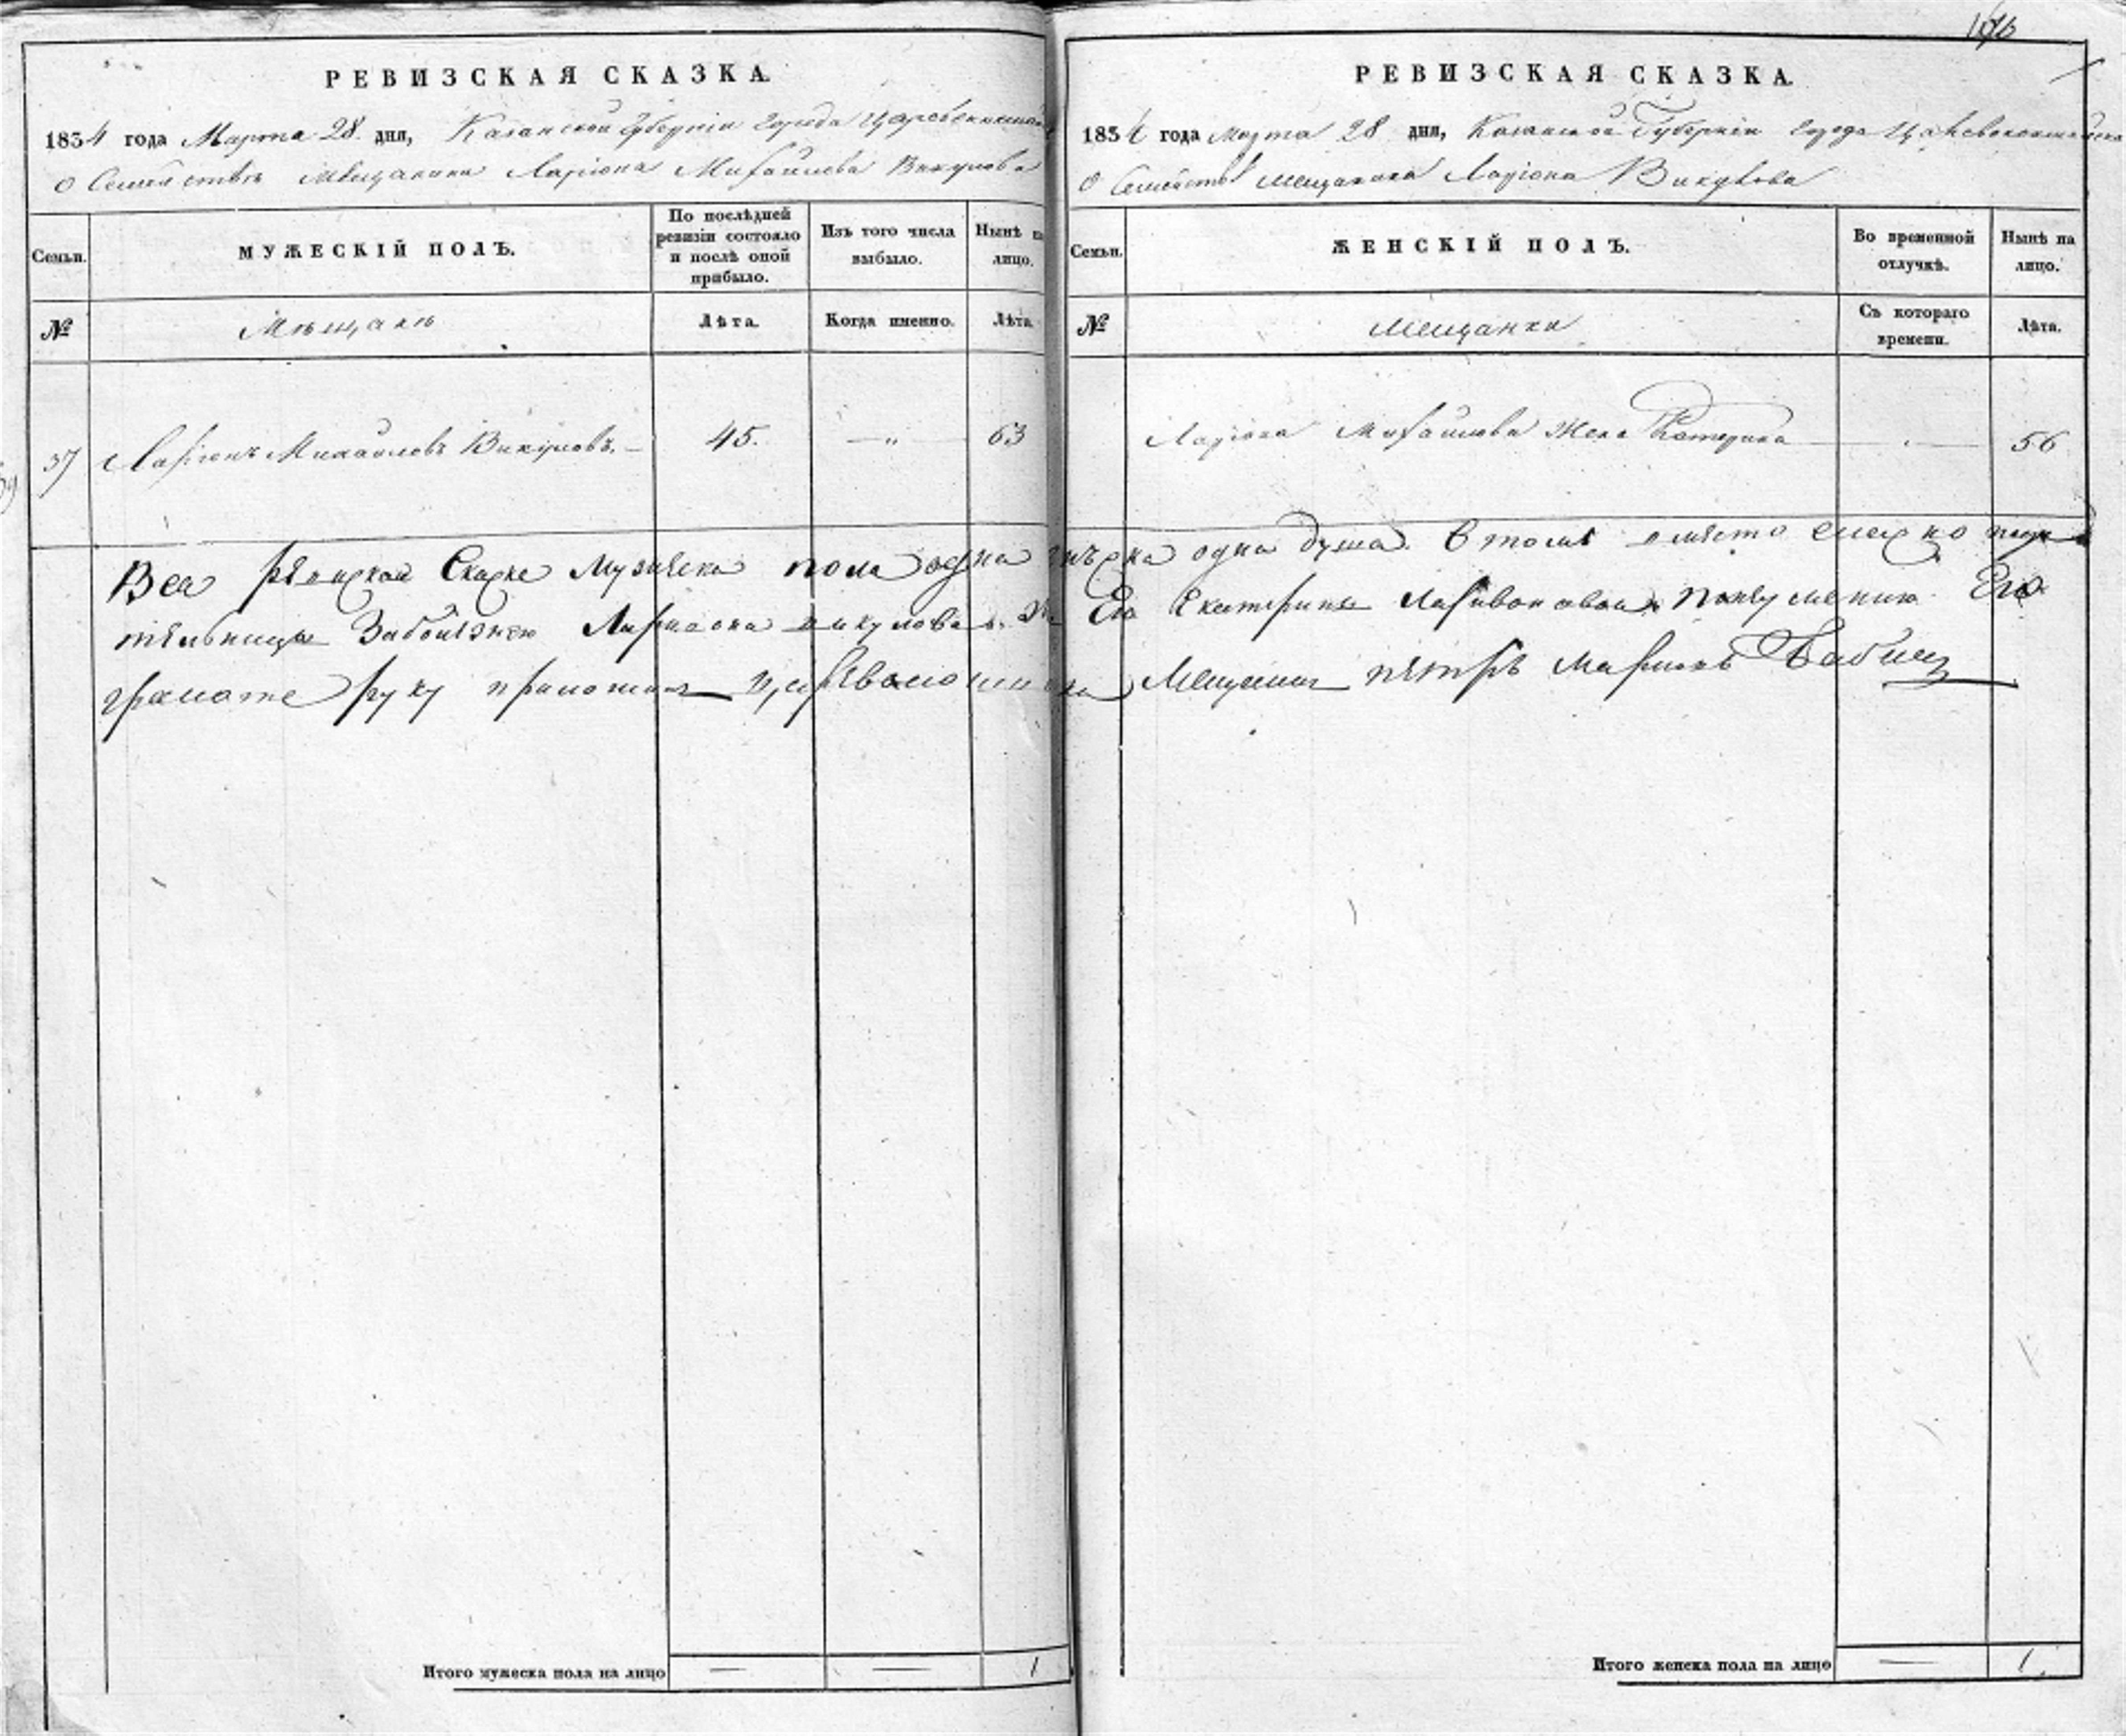 РЕВИЗСКАЯ СКАЗКА.
1854 года Марта 28 дня, Казанской Губерніи города Царевококшайска
О Семействѣ мѣщанина Ларіона Михайлова Викулова
Семьи.
МУЖЕСКІЙ ПОЛЪ.
По послѣдней ревизіи состояло и послѣ оной прибыло.
Изъ того числа выбыло.
Нынѣ на лицо.
№
Мѣщанъ
Лѣта.
Когда именно.
Лѣта.
37
Ларіонъ Михайловъ Викуловъ. —
45.
— „ —
63
Итого мужеска пола на лицо
—
—
1
РЕВИЗСКАЯ СКАЗКА.
1854 года Марта 28 дня, Казанской Губерніи города Царевококшайска
О Семействѣ мещанина Ларіона Викулова
Семьи.
ЖЕНСКІЙ ПОЛЪ.
Во временной отлучкѣ.
Нынѣ на лицо.
№
Мещанки
Съ котораго времени.
Лѣта.
Ларіона Михайлова Жена Катерина
—
56
Всей Скаске Мужеска пола одна одна душа. втомъ вместо
Ларионa викулова Его Екатерины Ларивоновой Его
грамоте руку приложилъ царевококшайска Мещанинъ петръ
Итого женска пола на лицо
—
1.